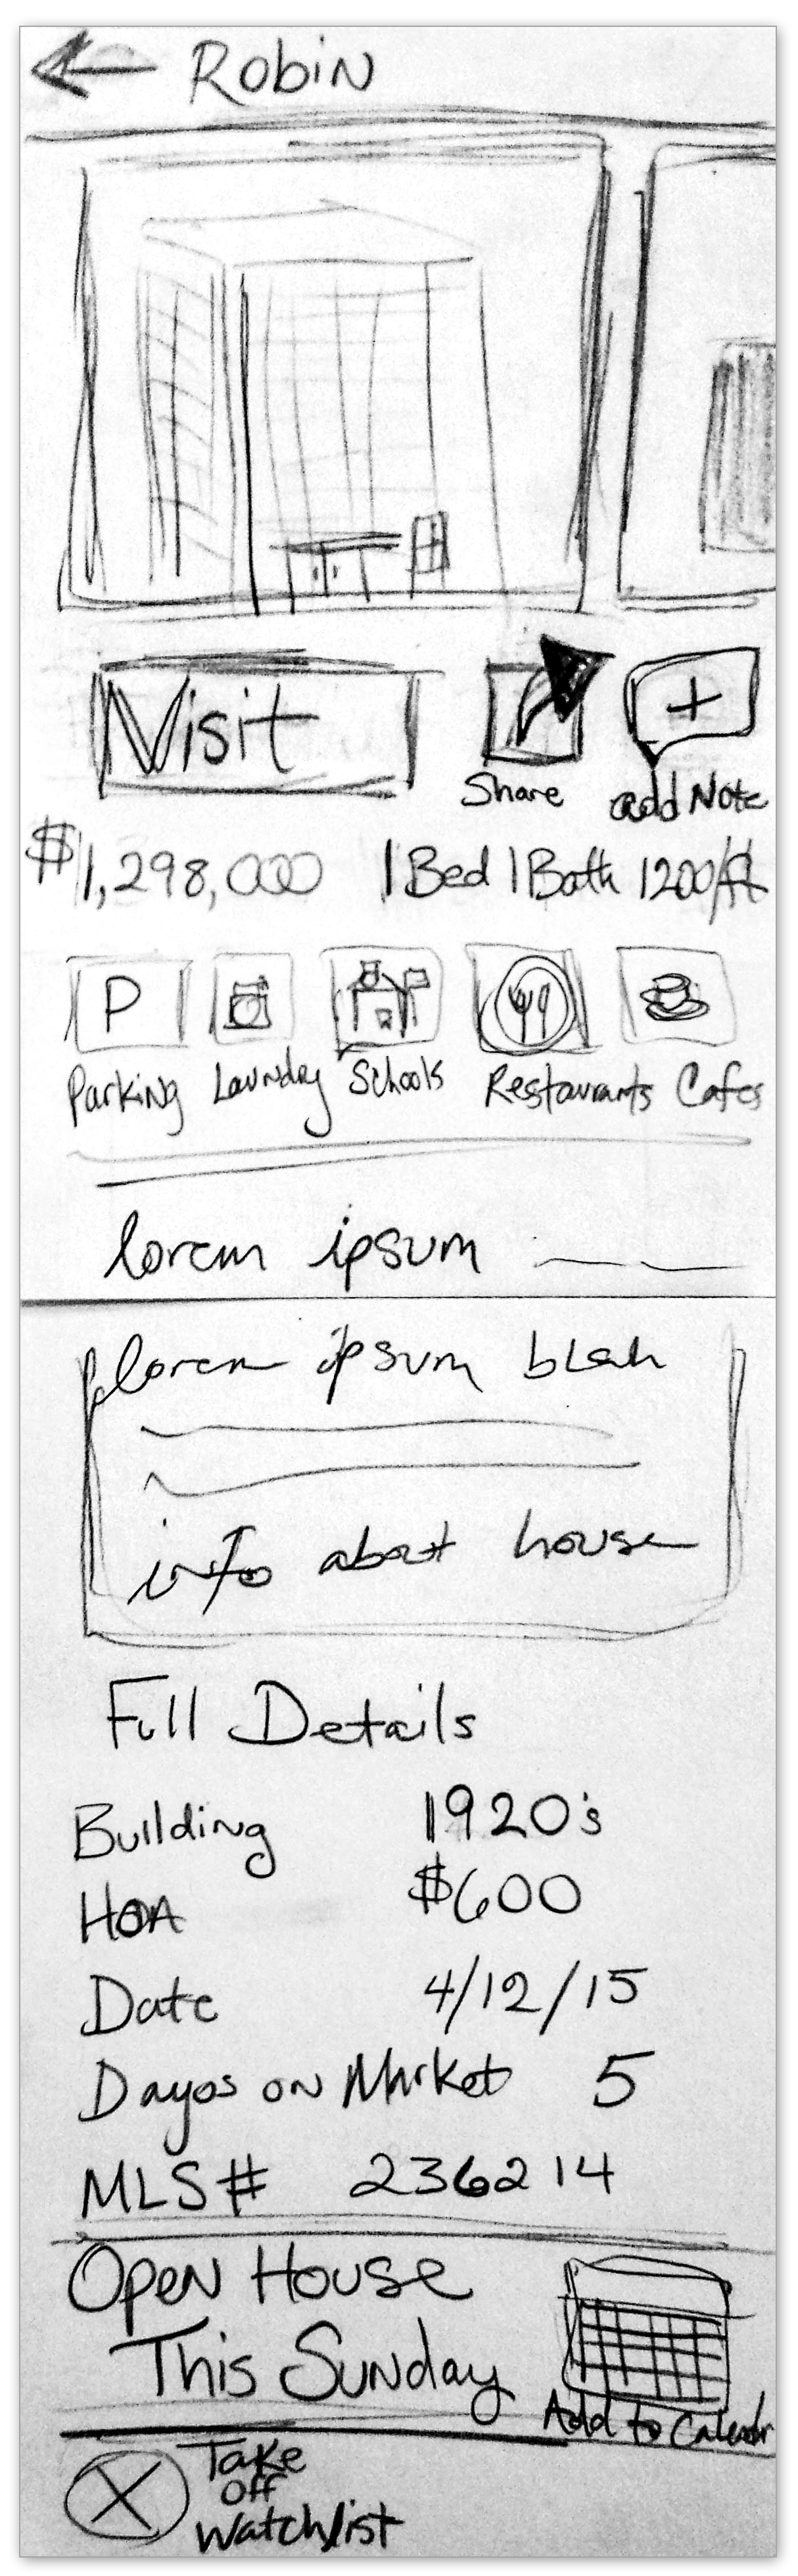 Robin
Visit
Share
add Note
$1,298,000 1 Bed 1 Bath 1200/ft
P
Parking Laundry Schools Restaurants Cafes
lorem ipsum
lorem ipsum blah
info about house
Full Details
Building 1920's
HOA $600
Date 4/12/15
Dayos on Market 5
MLS# 236214
Open House
This Sunday
Add to Calendr
Take
Off
Watchlist